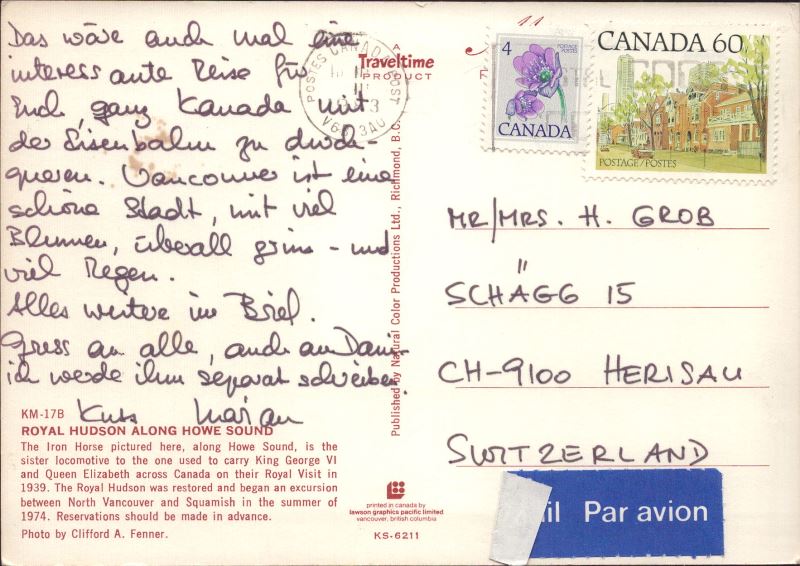 Das wäre auch mal eine
interessante Reise für
Euch, ganz Kanada mit
der Eisenbahn zu durch-
queren. Vancouver ist eine
schöne Stadt, mit viel
Blumen, überall grün - und
viel Regen.
Alles weitere im Brief.
Gruss an alle, auch an Dani-
ich werde ihm separat schreiben.
Kuss Marian
KM-17B
ROYAL HUDSON ALONG HOWE SOUND
The Iron Horse pictured here, along Howe Sound, is the
sister locomotive to the one used to carry King George VI
and Queen Elizabeth across Canada on their Royal Visit in
1939. The Royal Hudson was restored and began an excursion
between North Vancouver and Squamish in the summer of
1974. Reservations should be made in advance.
Photo by Clifford A. Fenner.
A
Traveltime
PRODUCT
Published by Natural Color Productions Ltd., Richmond, B.C.
printed in canada by
lawson graphics pacific limited
vancouver, british columbia
KS-6211
POSTES CANADA POST
V6B 3A0
4
POSTAGE
POSTES
CANADA
CANADA 60
POSTAGE/POSTES
MR/MRS. H. GROB
SCHÄGG 15
CH-9100 HERISAU
SWITZERLAND
il Par avion